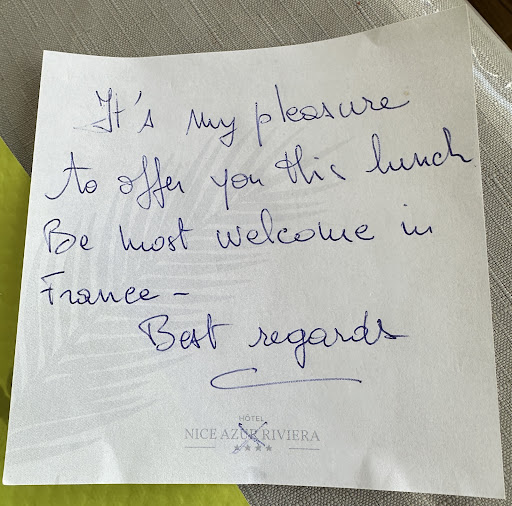 It's my pleasure
to offer you this lunch
Be most welcome in
France -
Best regards
HÔTEL
NICE AZUR RIVIERA